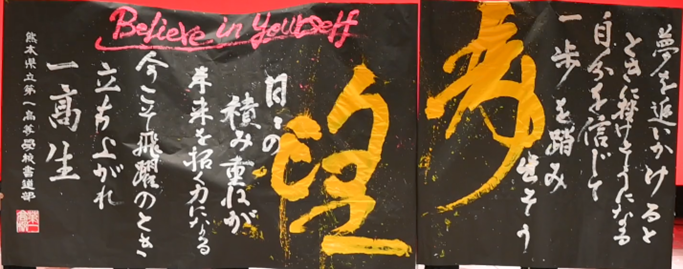 夢を追いかけると
ときに挫けそうになる
自分を信じて
一歩を踏み
出そう
望
日々の
積み重ねが
未来を拓く力になる
今こそ飛躍のとき
立ち上がれ
一高生
熊本県立第一高等學校書道部
Believe in yourself